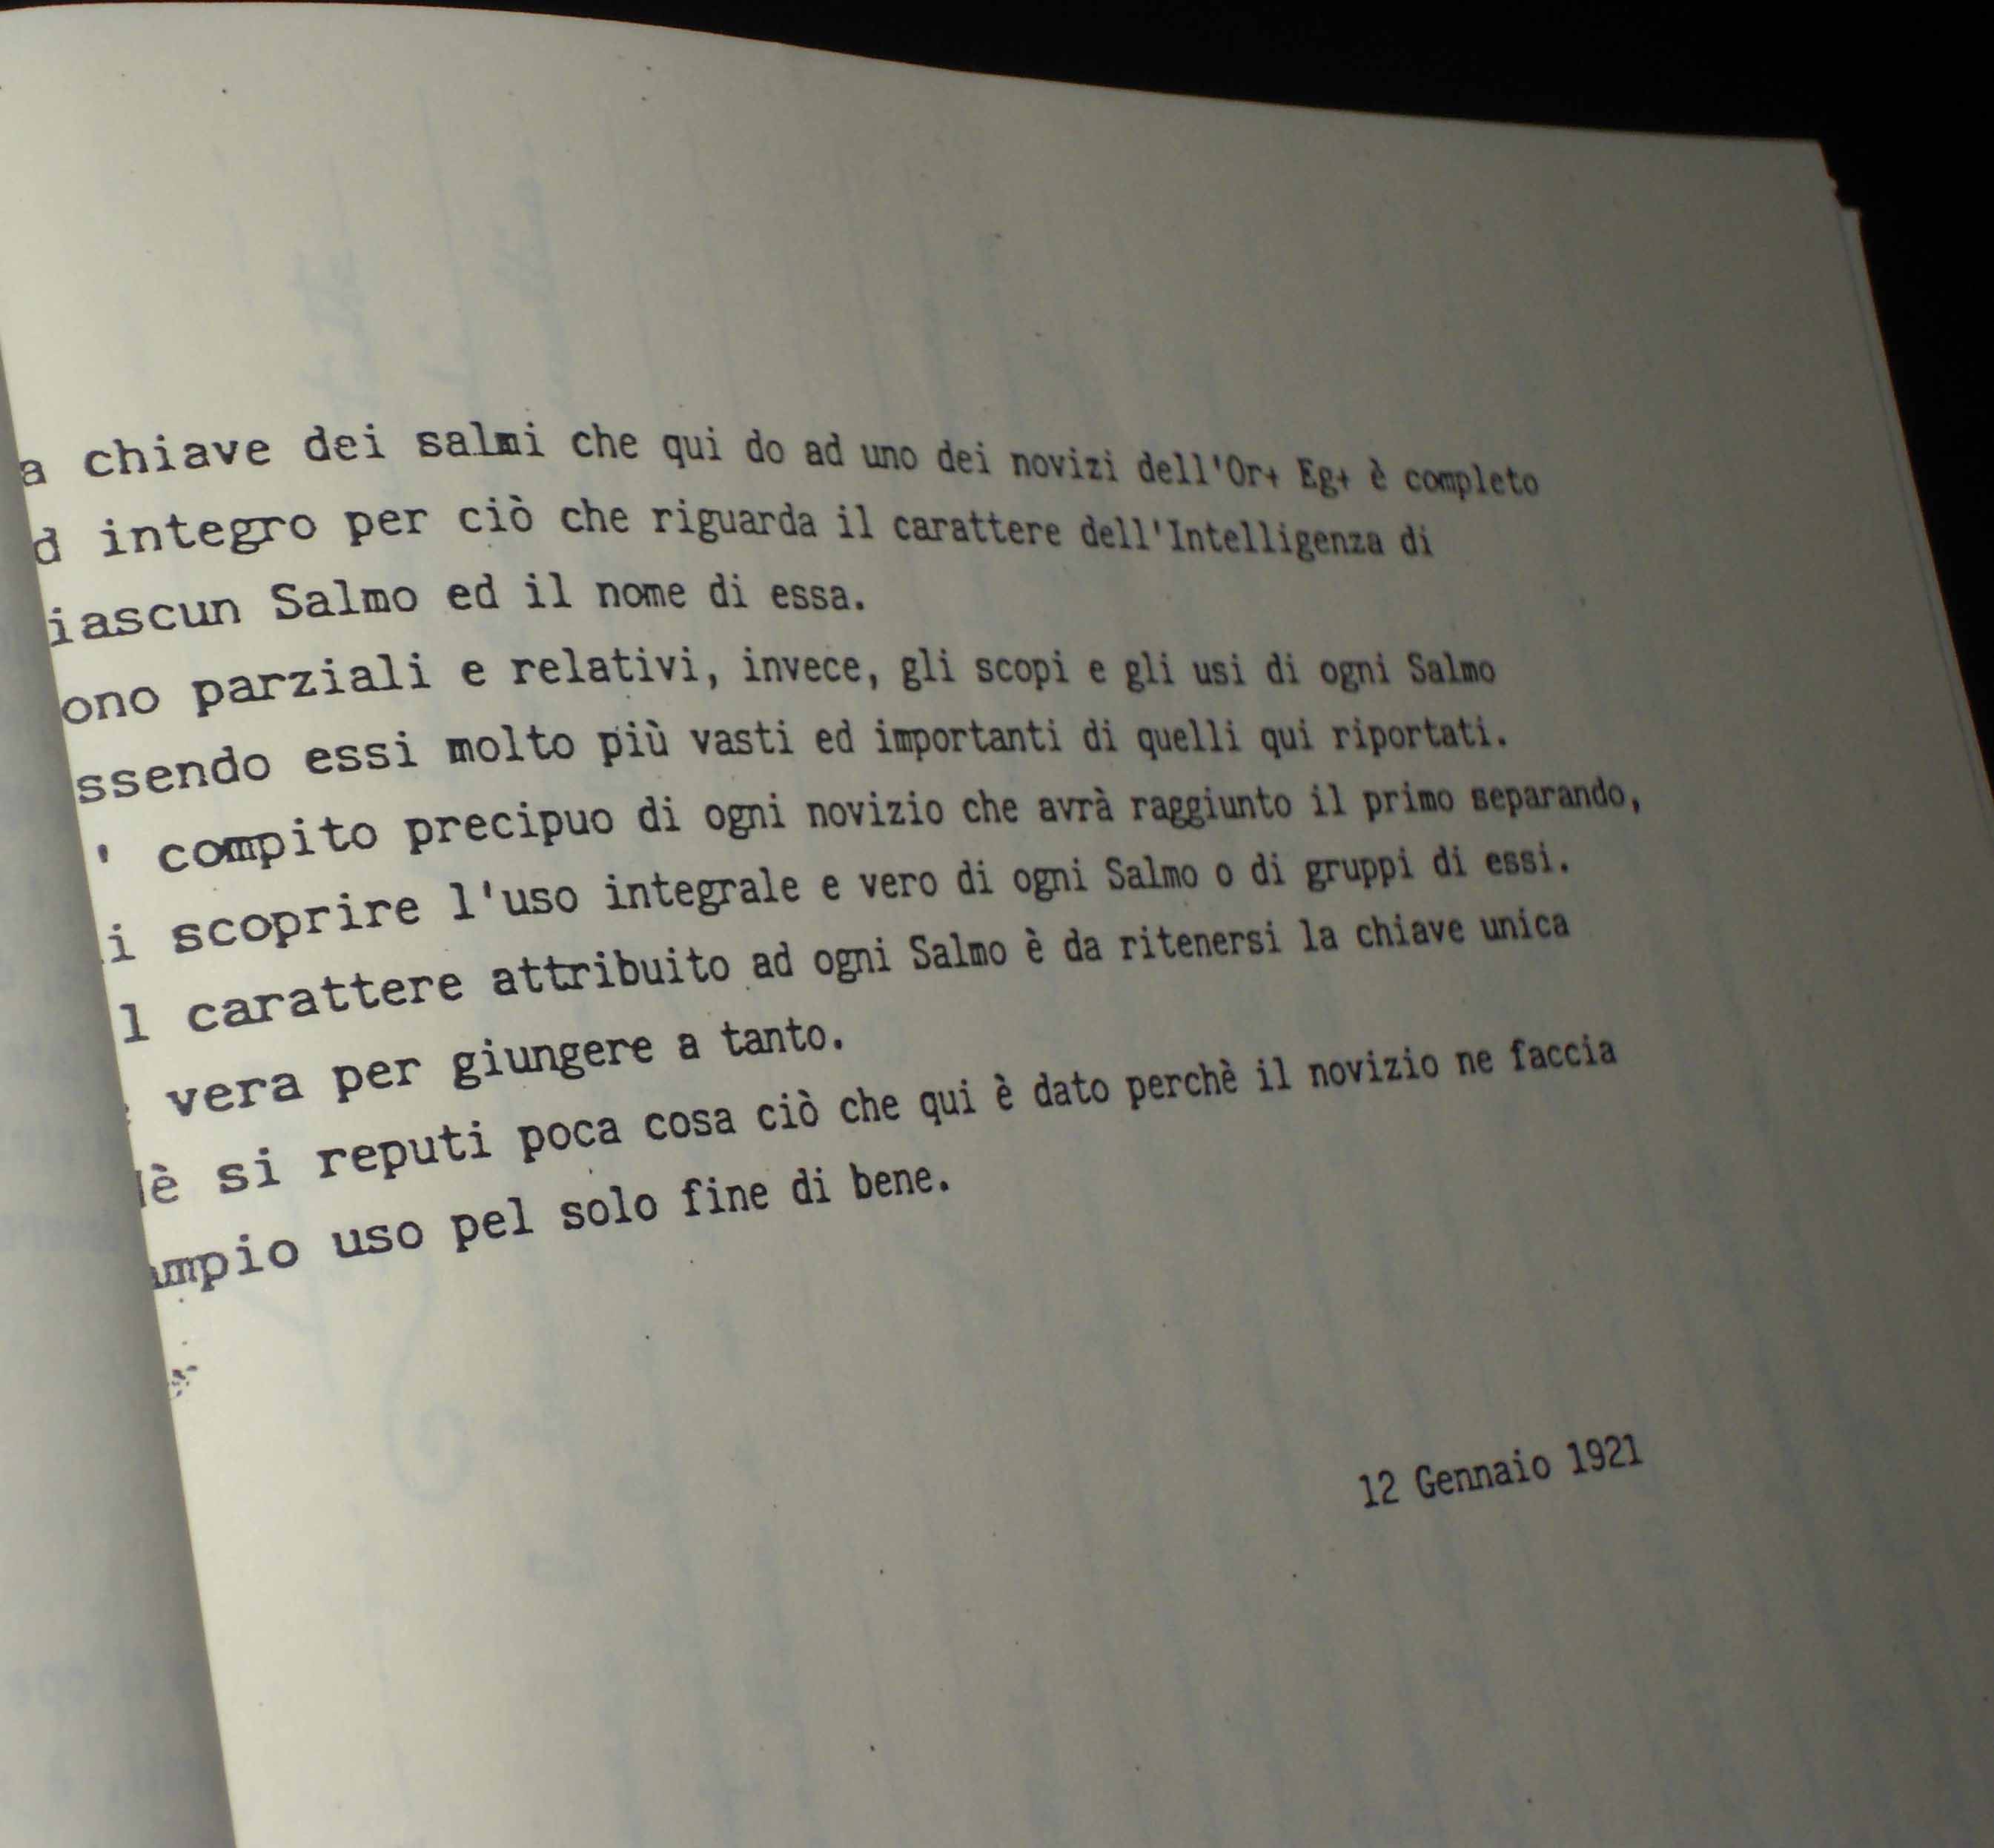 a chiave dei salmi che qui do ad uno dei novizi dell'Or+ Eg+ è completo
d integro per ciò che riguarda il carattere dell'Intelligenza di
iascun Salmo ed il nome di essa.
ono parziali e relativi, invece, gli scopi e gli usi di ogni Salmo
ssendo essi molto più vasti ed importanti di quelli qui riportati.
' compito precipuo di ogni novizio che avrà raggiunto il primo separando,
i scoprire l'uso integrale e vero di ogni Salmo o di gruppi di essi.
l carattere attribuito ad ogni Salmo è da ritenersi la chiave unica
vera per giungere a tanto.
è si reputi poca cosa ciò che qui è dato perchè il novizio ne faccia
ampio uso pel solo fine di bene.
12 Gennaio 1921